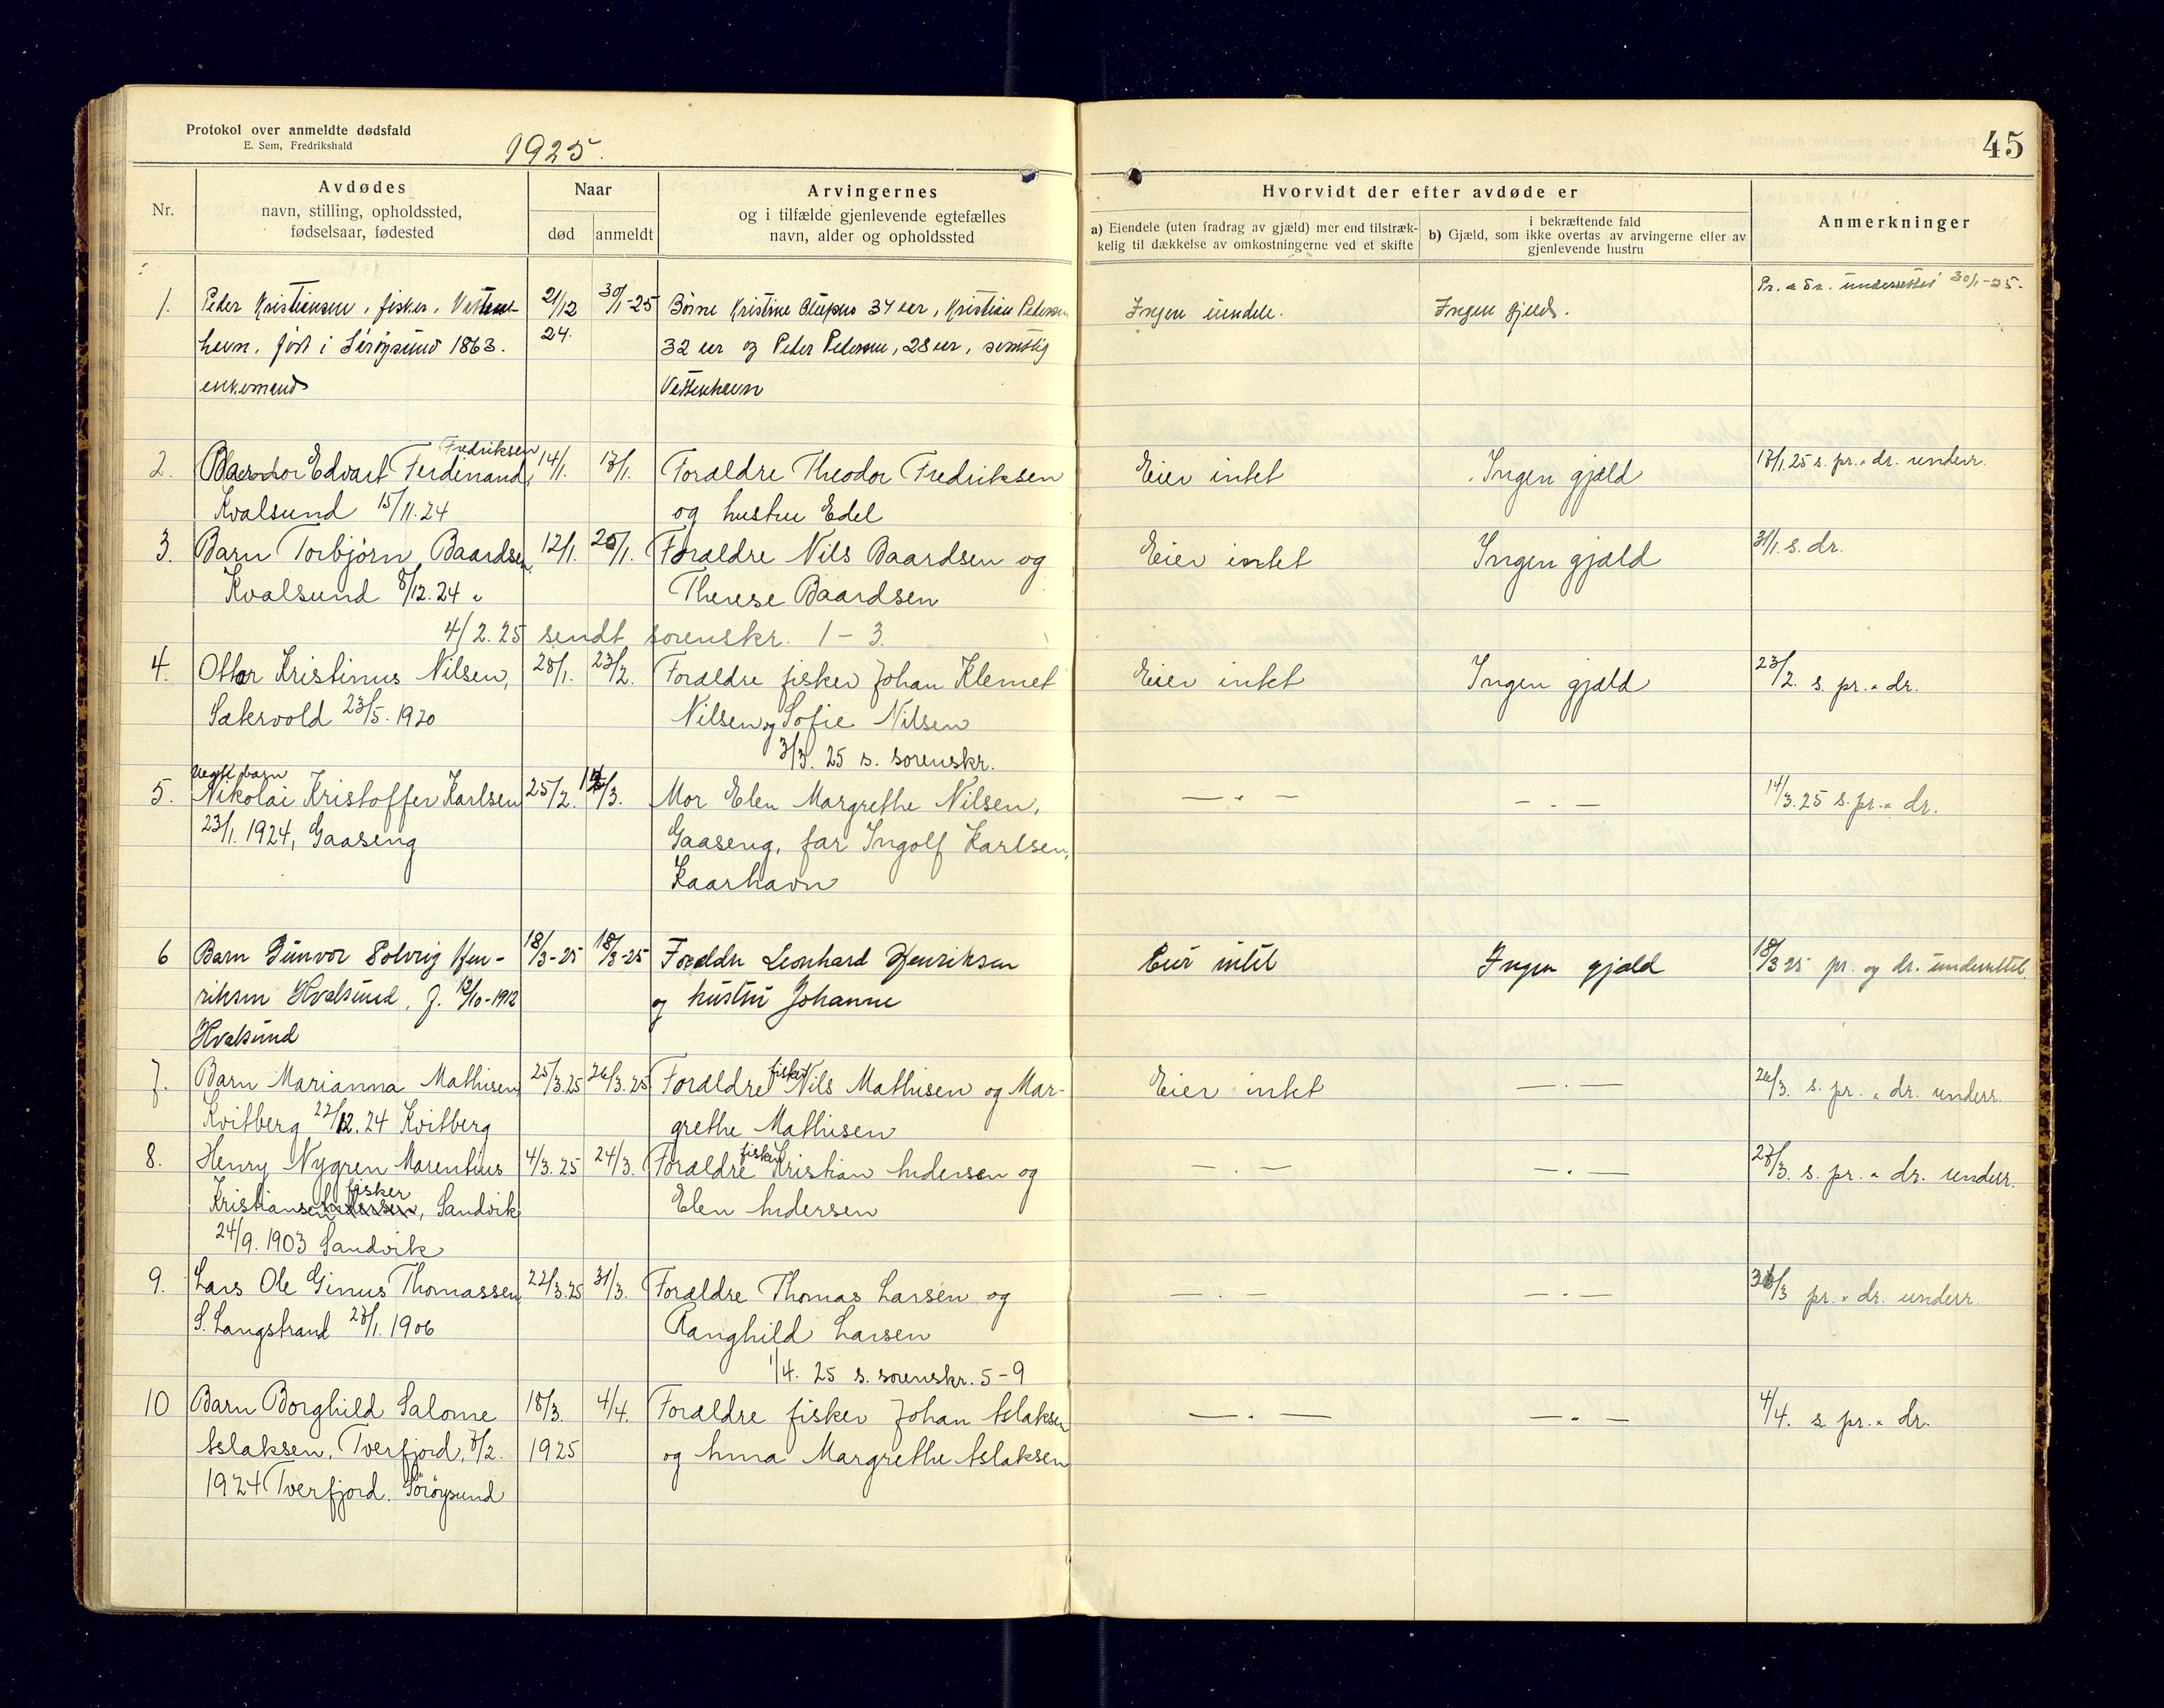 Protokol over anmeldte dødsfald
E. Sem, Fredrikshald
1925.
45
Nr.
Avdødes
navn, stilling, opholdssted,
fødselsaar, fødested
Naar
død
anmeldt
Arvingernes
og i tilfælde gjenlevende egtefælles
navn, alder og opholdssted
Hvorvidt der efter avdøde er
a) Eiendele (uten fradrag av gjæld) mer end tilstræk-
kelig til dækkelse av omkostningerne ved et skifte
i bekræftende fald
b) Gjæld, som ikke overtas av arvingerne eller av
gjenlevende hustru
Anmerkninger
1. Peder Kristiansen, fisker, 21/12 30/1-25 Børne Kristine 34 aar, Kristian Pedersen Ingen eiendele. Ingen gjeld. Pr. & dr. underrettet 30/1-25.
havn, født i Sørøysund 1863. 24. 32 aar og Peder Pedersen, 28 aar, samtlig
enkemand
Fredriksen
2. Edvart Ferdinand, 14/1. 17/1. Forældre Theodor Fredriksen Eier intet Ingen gjæld 17/1.25 s. pr. & dr. underr.
Kvalsund 15/11.24 og hustru Edel
3. Barn Torbjørn Baardsen, 12/1. 20/1. Forældre Nils Baardsen og Eier intet Ingen gjæld 31/1. s. dr.
Kvalsund 8/12.24 Therese Baardsen
4/2.25 sendt sorenskr. 1-3.
4. Ottar Kristinus Nilsen, 28/1. 23/2. Forældre fisker Johan Klemet Eier intet Ingen gjæld 23/2. s. pr. & dr.
Sakervold 23/5.1920 Nilsen og Sofie Nilsen
3/3. 25 s. sorenskr.
uegte barn
5. Nikolai Kristoffer Karlsen 25/2. 14/3. Mor Elen Margrethe Nilsen, — " — — . — 14/3.25 s. pr. & dr.
23/1. 1924, Gaaseng Gaaseng, far Ingolf Karlsen,
Kaarhavn
6 Barn Gunvor Solveig Hen- 18/3-25 18/3-25 Foreldre Leonhard Henriksen Eier intet Ingen gjæld 18/3 25 pr. og dr. underrettet
riksen Hvalsund, f. 12/10-1912 og hustru Johanne
Hvalsund
fisker
7. Barn Marianna Mathisen, 25/3.25 26/3.25 Forældre Nils Mathisen og Mar- Eier intet — . — 26/3. s. pr. & dr. underr.
Kvitberg 22/12.24 Kvitberg grethe Mathisen
fisker
8. Henry Nygren Marentius 4/3.25 24/3. Forældre Kristian Andersen og — . — — . — 27/3. s. pr. & dr. underr.
fisker
Kristiansen Andersen, Sandvik Elen Andersen
24/9.1903 Sandvik
9. Lars Ole Ginus Thomassen, 22/3.25 31/3. Forældre Thomas Larsen og — . — — . — 31/3 pr. & dr. underr.
S. Langstrand 23/1.1906 Ranghild Larsen
1/4. 25 s. sorenskr. 5-9
10 Barn Borghild Salome 18/3. 4/4. Forældre fisker Johan Aslaksen — . — — . — 4/4. s pr. & dr.
Aslaksen, Tverfjord, 7/2. 1925 og Anna Margrethe Aslaksen
1924 Tverfjord. Sørøysund